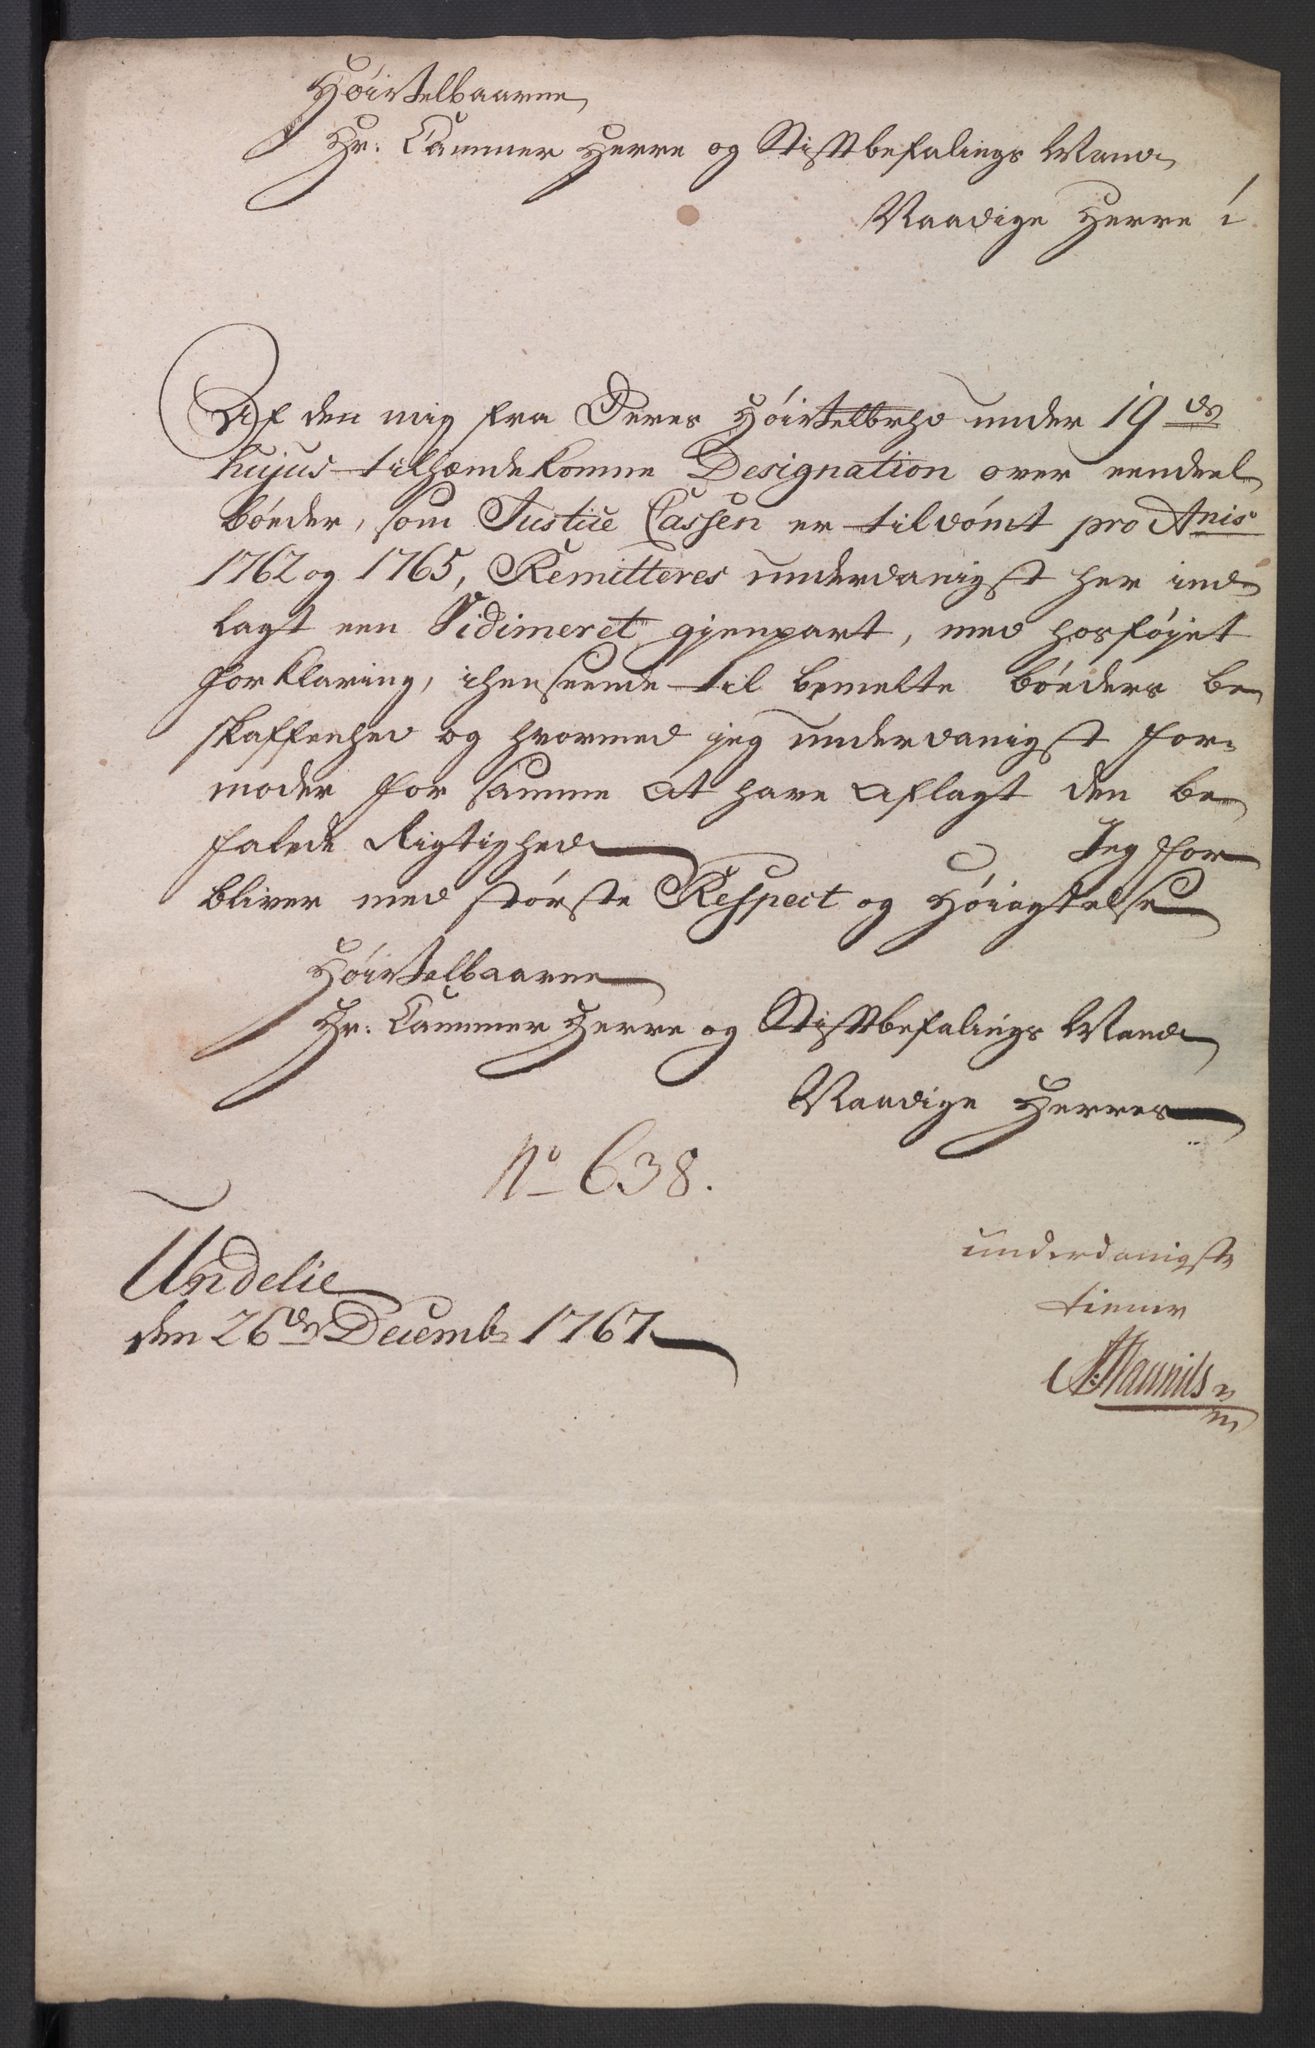 Høivelbaarne
Hr: Cammer Herre og Stiftbefalings Mand
Naadige Herre!
Af den mig fra Deres Høivelbrhd under 19de
hujus tilhændekomne Designation over eendeel
bøeder, som Justice Cassen er tildømt pro Anis
1762 og 1765, Remitteres underdanigst her ind-
lagt een Vidimeret gjenpart, med hosføyet
forklaring, ihenseende til bemelte bøeders be-
skaffenhed og hvormed jeg underdanigst for-
moder for samme at have aflagt den be-
falede Rigtighed Jeg for-
bliver med største Respect og Høiagtelse
Høivelbaarne
Hr: Cammer Herre og Stiftbefalings Mand
Naadige Herres
No 638.
underdanigste
Undelie
tiener
den 26de Decemb 1767